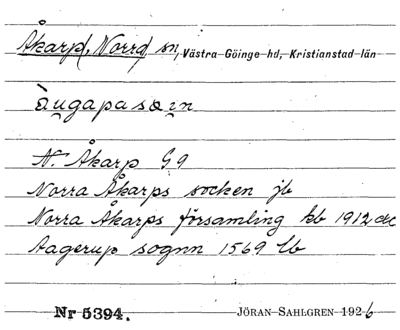 Åkarp, Norra sn, Västra Göinge hd, Kristianstad län
N. Åkarp G9
Norra Åkarps socken jb
Norra Åkarps församling kb 1912 etc
Aagerup sognn 1569 lb
Nr 5394. JÖRAN SAHLGREN 1926